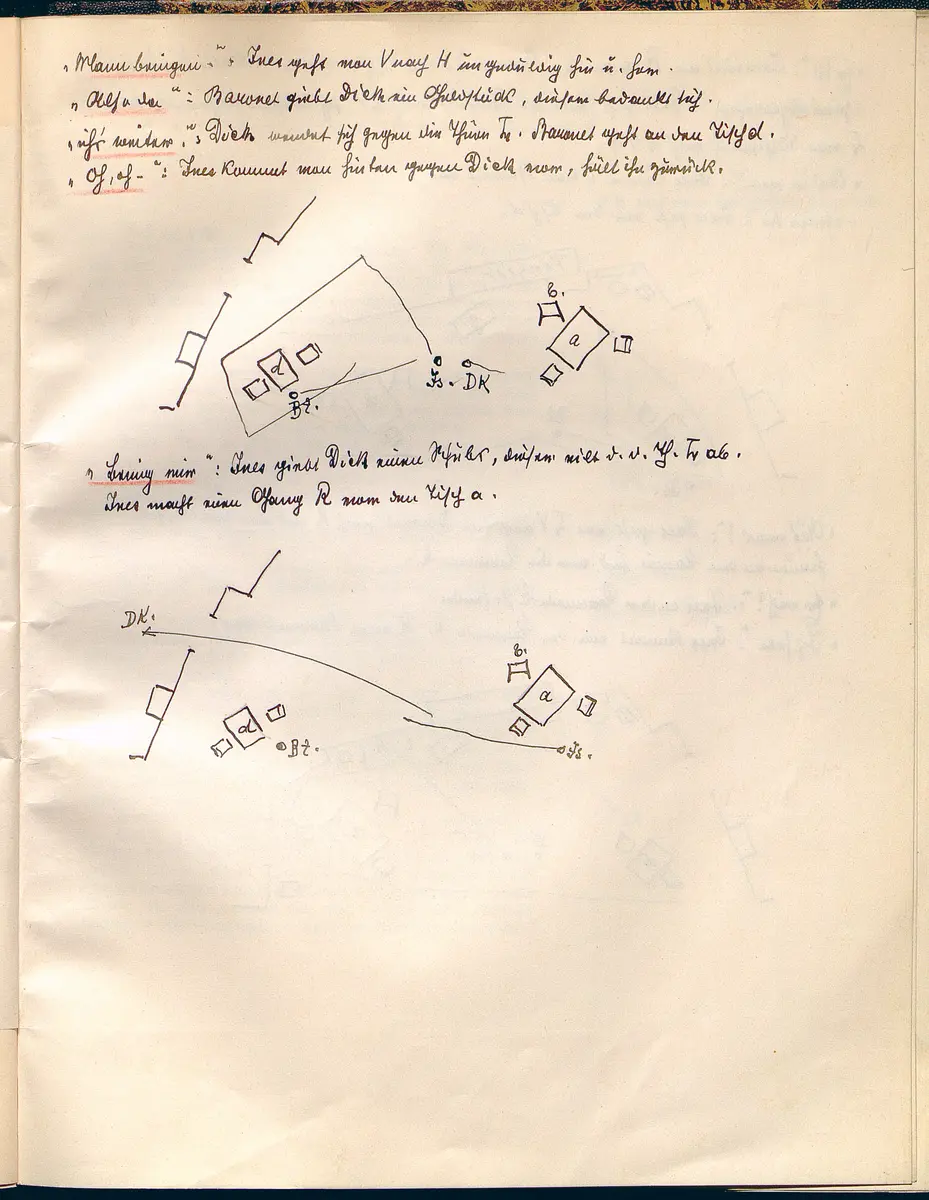 „Mann bringen -": Ines geht von V nach H ungeduldig hin u. her.
„Also da": Baronet giebt Dick ein Geldstück, dieser bedankt sich.
„ich's weiter.": Dick wendet sich gegen die Thüre Tr. Baronet geht an den Tisch d.
„Oh, oh -": Ines kommt von hinten gegen Dick vor, hält ihn zurück.
b.
a
d
Is. DK
Bt.
„Bring mir": Ines giebt Dick einen Schubs, dieser eilt d. d. Th. Tr ab.
Ines macht einen Gang R vor den Tisch a.
DK.
b.
a
d
Bt.
Is.